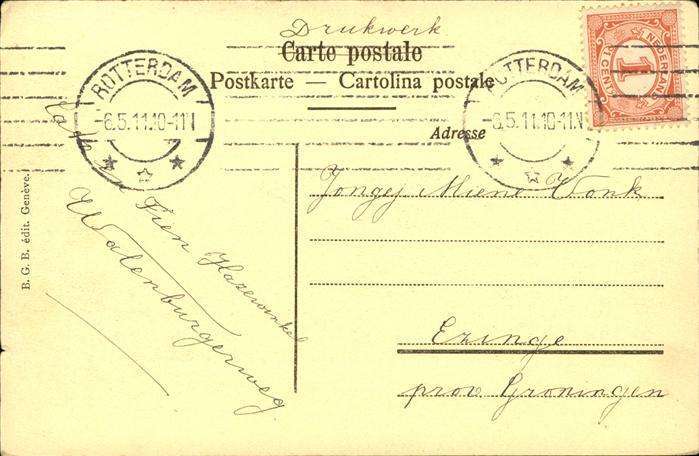 Drukwerk
Carte postale
Postkarte — Cartolina postale
Adresse
ROTTERDAM
-6.5.11.10-11V
ROTTERDAM
-6.5.11.10-11.V
NEDERLAND
1
CENT
Jongej Miene Vonk
Ezinge
prov Groningen
Fien Hazewinkel
Walenburgerweg
B. G. B. édit. Genève.